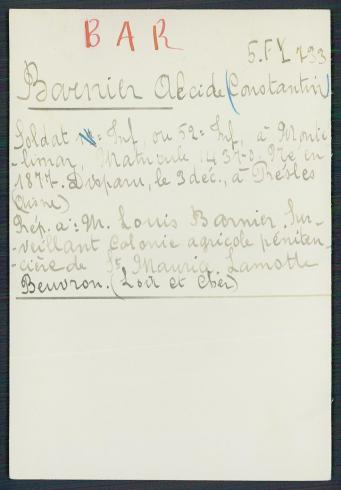 BAR
5.FY.733
Barnier Alcide (Constantin)
Soldat Inf, ou 52e Inf, à Monté
-limar, Matricule 1437-0. Né en
1877. Disparu, le 3 déc., à Presles
(Aisne)
Rép. à: M. Louis Barnier, Sur-
veillant Colonie agricole péniten-
-cière de St Maurice Lamotte
Beuvron. (Loir et Cher)